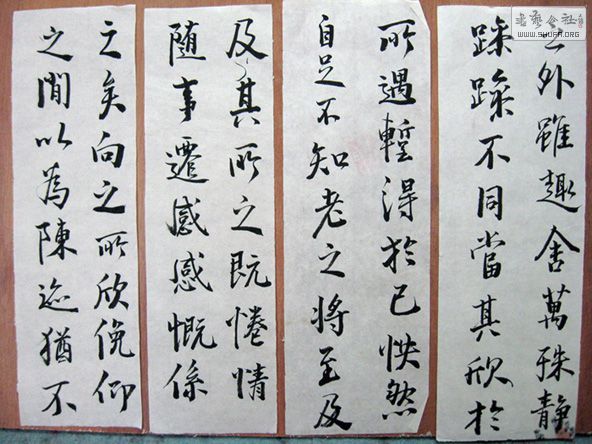 之外雖趣舍萬殊靜
躁躁不同當其欣於
所遇暫得於己怏然
自足不知老之將至及
及其所之既惓情
隨事遷感感慨係
之矣向之所欣俛仰
之閒以為陳迹猶不
書藝公社
www.SHUFA.ORG